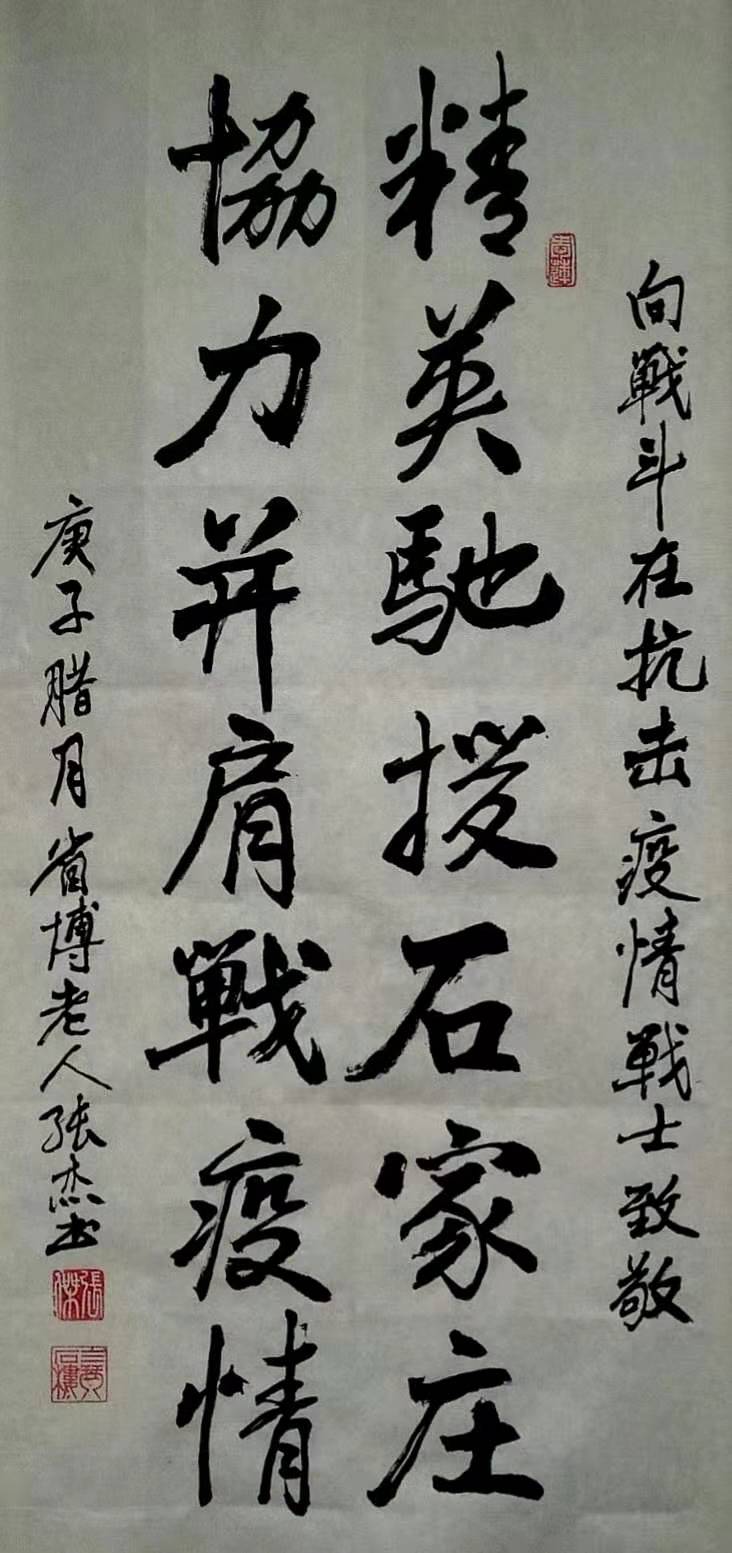 向戰斗在抗击疫情戰士致敬
精英馳援石家庄
協力并肩戰疫情
庚子腊月省博老人張杰书
張傑